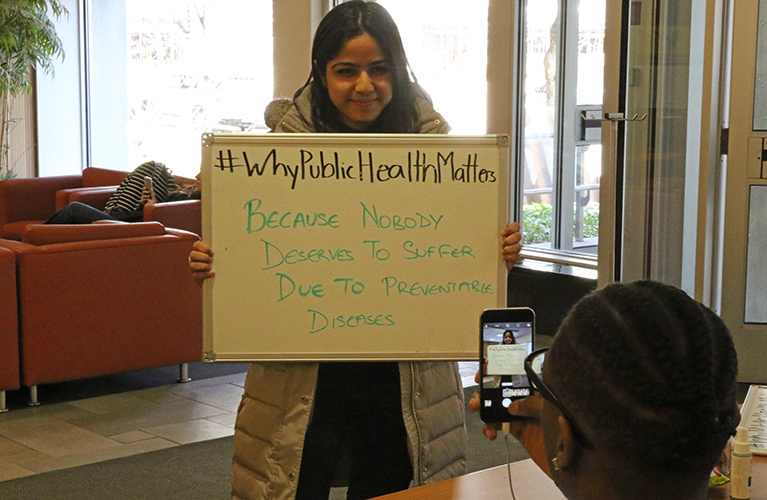 #WhyPublicHealthMatters
BECAUSE NOBODY
DESERVES TO SUFFER
DUE TO PREVENTABLE
DISEASES